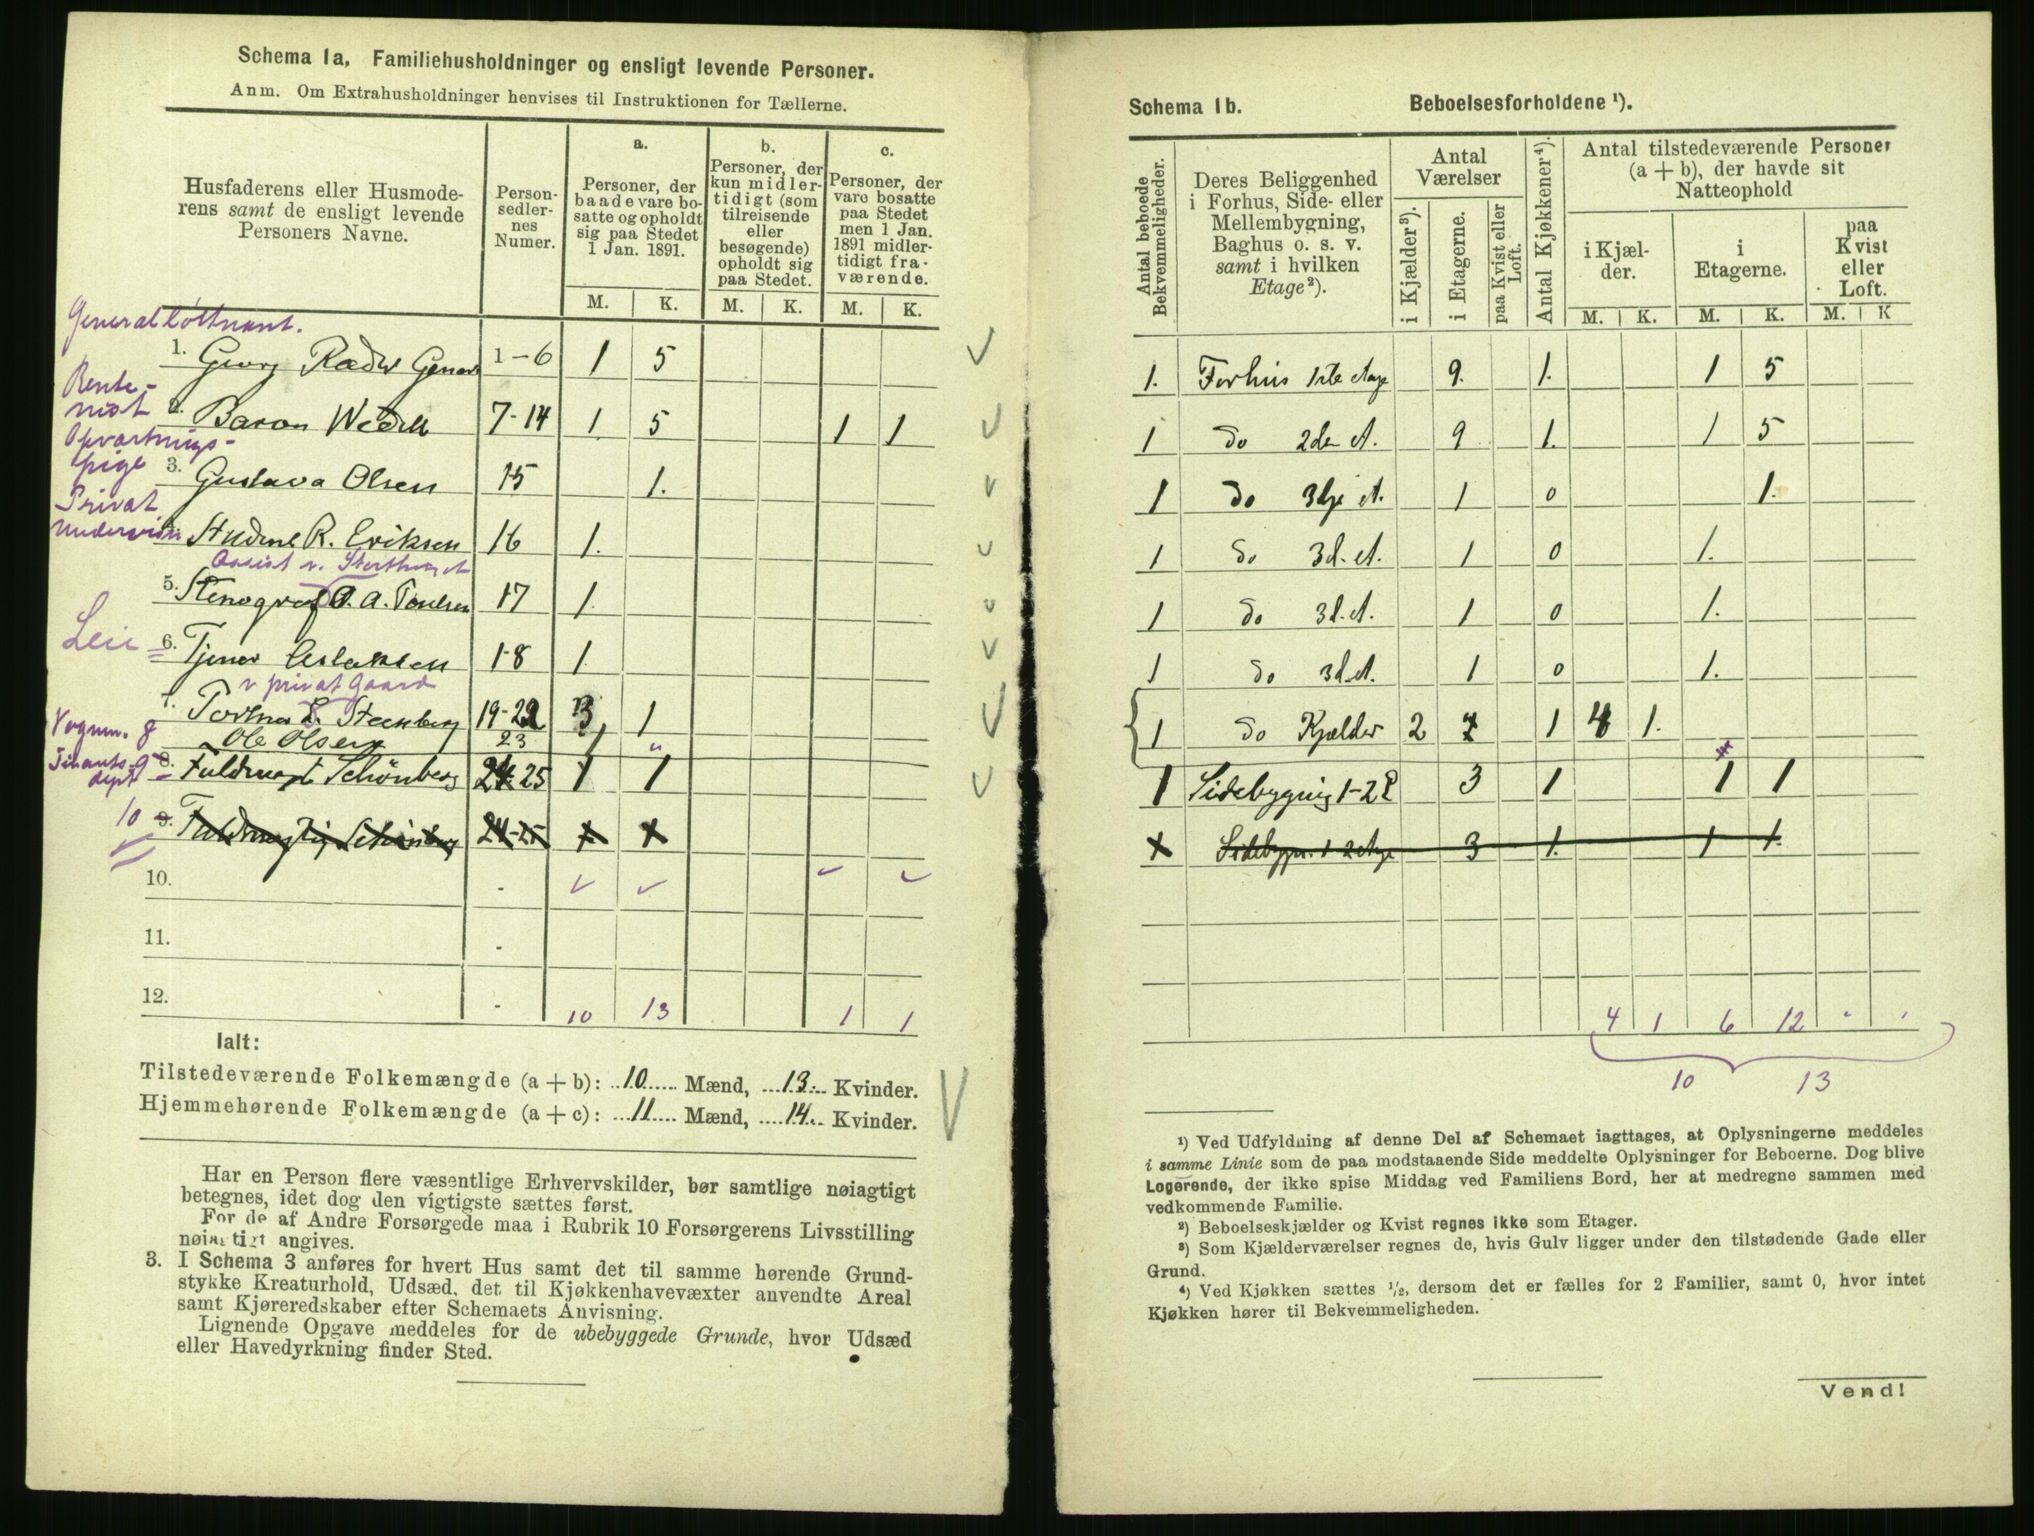 Schema 1a, Familiehusholdninger og ensligt levende Personer.
Anm. Om Extrahusholdninger henvises til Instruktionen for Tællerne.
Husfaderens eller Husmoderens samt de ensligt levende Personers Navne.
Person-sedlernes Numer.
a. Personer, der baade vare bosatte og opholdt sig paa Stedet 1 Jan. 1891.
b. Personer, der kun midlertidigt (som tilreisende eller besøgende) opholdt sig paa Stedet.
c. Personer, der vare bosatte paa Stedet men 1 Jan. 1891 midlertidigt fraværende.
M. K. M. K. M. K.
Generalløitnant.
1. Georg Ræder General 1-6 1 5
Rentenist
2. Baron Wedell 7-14 1. 5 1 1
Opvartningspige
3. Gustava Olsen 15 1.
Privat
Student R. Eriksen 16 1.
Assist v. Storthinget
5. Stenograf A. Poulsen 17 1.
Leie
6. Tjener Aslaksen 18 1.
v privat Gaard
7. Portner L. Steenberg 19-22 3 1
Vognm. 8 Ole Olsen 23 1 "
Finants dept 9
8. Fuldmægt Schönberg 24 25 1 1
10
9. Fuldmægtig Schönberg 24-25
10. -
11. -
12. - 10 13 1 1
Ialt:
Tilstedeværende Folkemængde (a + b): 10 Mænd, 13. Kvinder.
Hjemmehørende Folkemængde (a + c): 11 Mænd, 14. Kvinder.
Har en Person flere væsentlige Erhvervskilder, bør samtlige nøiagtigt
betegnes, idet dog den vigtigste sættes først.
For de af Andre Forsørgede maa i Rubrik 10 Forsørgerens Livsstilling
nøiagtigt angives.
3. I Schema 3 anføres for hvert Hus samt det til samme hørende Grund-
stykke Kreaturhold, Udsæd, det til Kjøkkenhavevæxter anvendte Areal
samt Kjøreredskaber efter Schemaets Anvisning.
Lignende Opgave meddeles for de ubebyggede Grunde, hvor Udsæd
eller Havedyrkning finder Sted.
Schema 1b. Beboelsesforholdene ¹).
Antal beboede Bekvemmeligheder.
Deres Beliggenhed i Forhus, Side- eller Mellembygning, Baghus o. s. v. samt i hvilken Etage ²).
Antal Værelser
i Kjælder ³).
i Etagerne.
paa Kvist eller Loft.
Antal Kjøkkener ⁴).
Antal tilstedeværende Personer (a + b), der havde sit Natteophold
i Kjælder.
i Etagerne.
paa Kvist eller Loft.
M. K. M. K. M. K
1. Forhus 1ste Etage 9. 1. 1 5
1 Do 2den Et. 9 1. 1 5
1 Do 3dje Et. 1 0 1.
1 Do 3d. Et. 1 0 1.
1 Do 3d. Et. 1 0 1.
1 Do 3d Et. 1 0 1.
1 Do Kjælder 2 1 4 1.
1 Sidebygnig 1-2 E 3 1 1 1
Sidebygn. 1-2 Etage 3 1. 1 1.
4 1 6 12
10 13
¹) Ved Udfyldning af denne Del af Schemaet iagttages, at Oplysningerne meddeles
i samme Linie som de paa modstaaende Side meddelte Oplysninger for Beboerne. Dog blive
Logerende, der ikke spise Middag ved Familiens Bord, her at medregne sammen med
vedkommende Familie.
²) Beboelseskjælder og Kvist regnes ikke som Etager.
³) Som Kjælderværelser regnes de, hvis Gulv ligger under den tilstødende Gade eller
Grund.
⁴) Ved Kjøkken sættes ¹/₂, dersom det er fælles for 2 Familier, samt 0, hvor intet
Kjøkken hører til Bekvemmeligheden.
Vend!